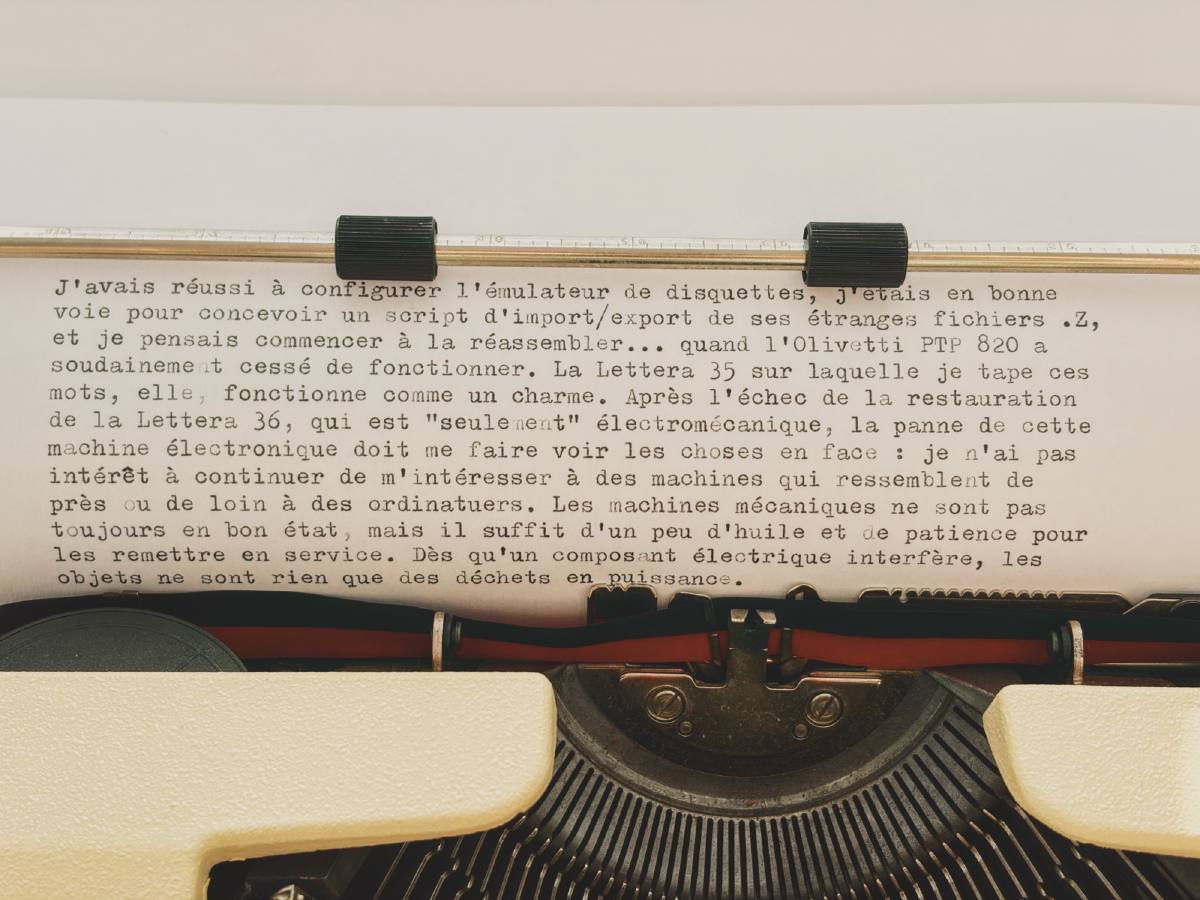 J'avais réussi à configurer l'émulateur de disquettes, j'étais en bonne
voie pour concevoir un script d'import/export de ses étranges fichiers .Z,
et je pensais commencer à la réassembler... quand l'Olivetti PTP 820 a
soudainement cessé de fonctionner. La Lettera 35 sur laquelle je tape ces
mots, elle, fonctionne comme un charme. Après l'échec de la restauration
de la Lettera 36, qui est "seulement" électromécanique, la panne de cette
machine électronique doit me faire voir les choses en face : je n'ai pas
intérêt à continuer de m'intéresser à des machines qui ressemblent de
près ou de loin à des ordinatuers. Les machines mécaniques ne sont pas
toujours en bon état, mais il suffit d'un peu d'huile et de patience pour
les remettre en service. Dès qu'un composant électrique interfère, les
objets ne sont rien que des déchets en puissance.